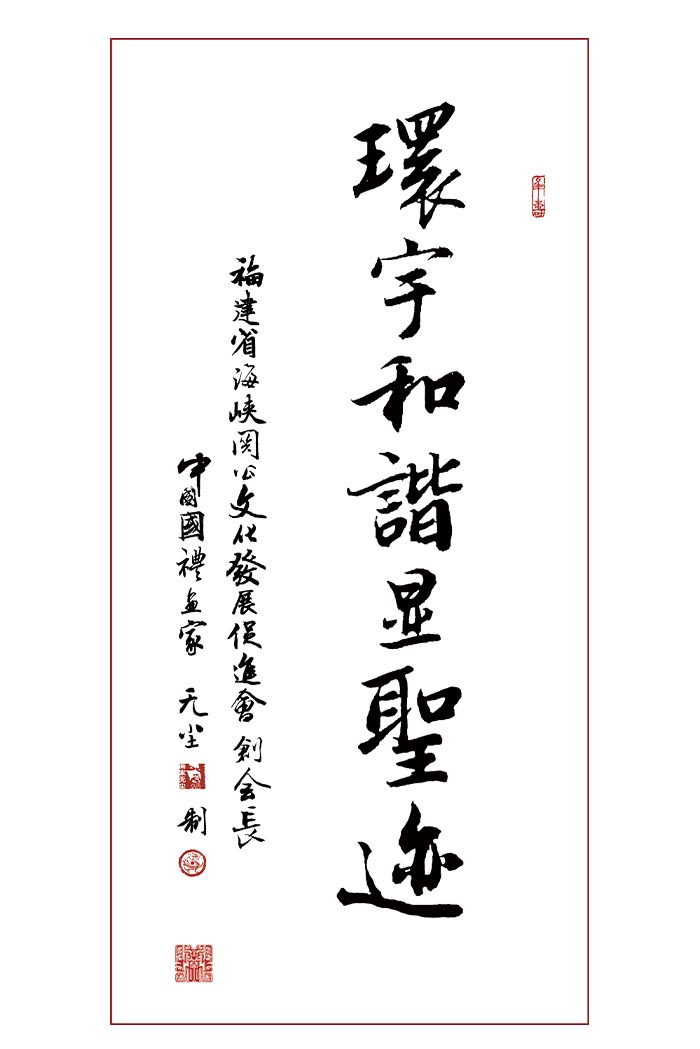 環宇和諧显聖迹
福建省海峡関公文化發展促進會 創会長
中國國禮画家 无尘 制